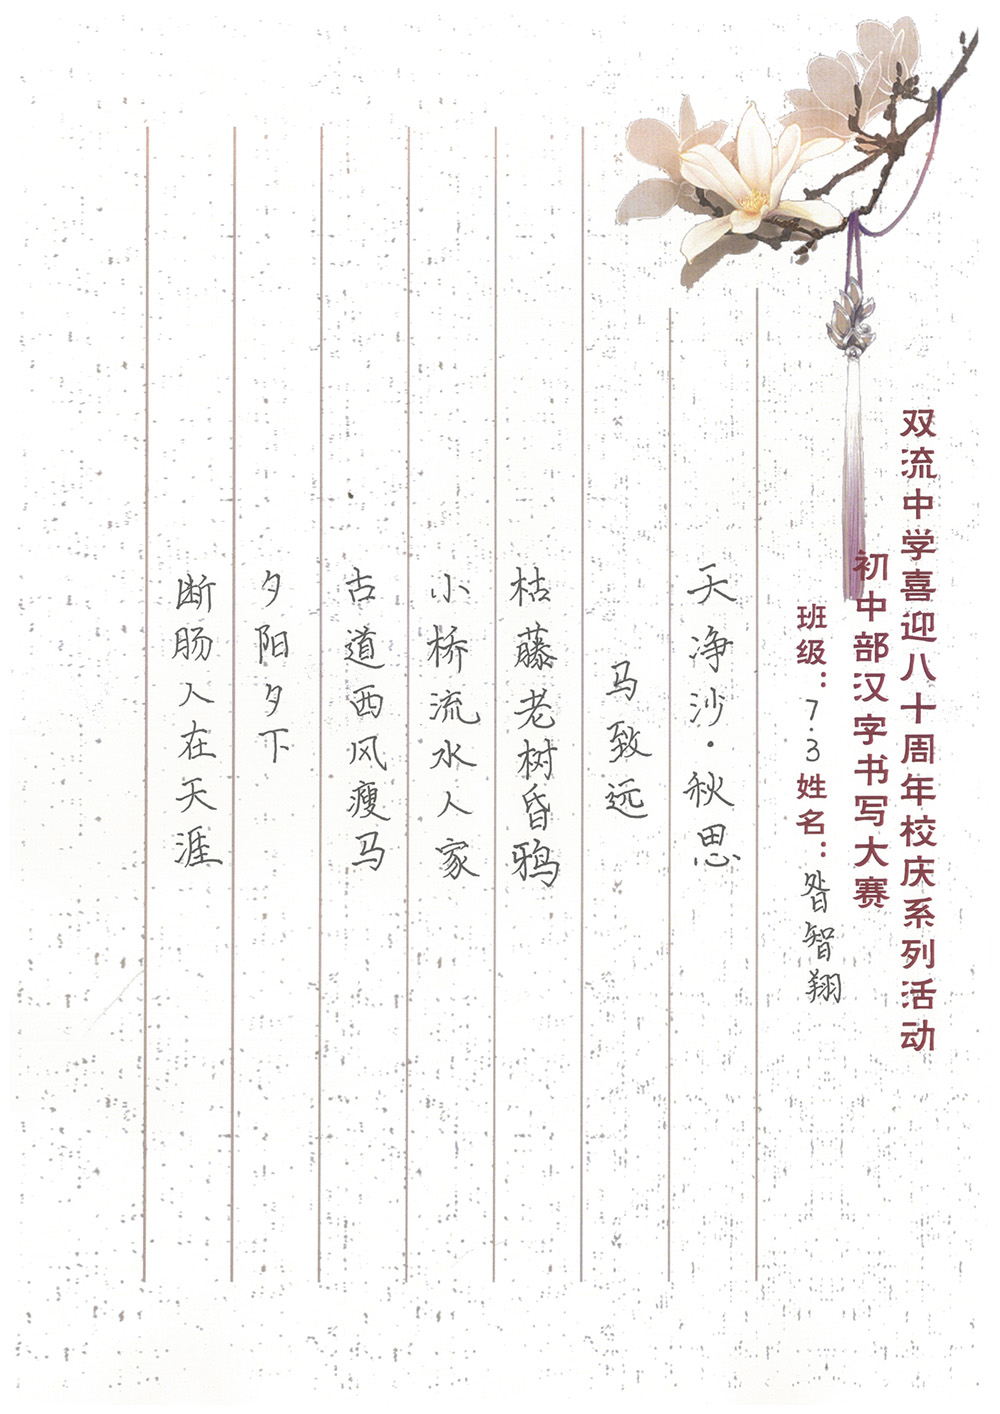 双流中学喜迎八十周年校庆系列活动
初中部汉字书写大赛
班级：7.3姓名：昝智翔
天净沙·秋思
马致远
枯藤老树昏鸦
小桥流水人家
古道西风瘦马
夕阳夕下
断肠人在天涯